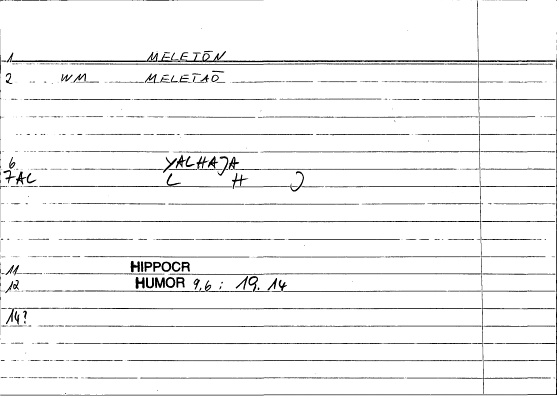 1 MELETŌN
2 WM MELETAŌ
6 YALHAJA
7AL L H J
11 HIPPOCR
12 HUMOR 9,6 : 19.14
14?